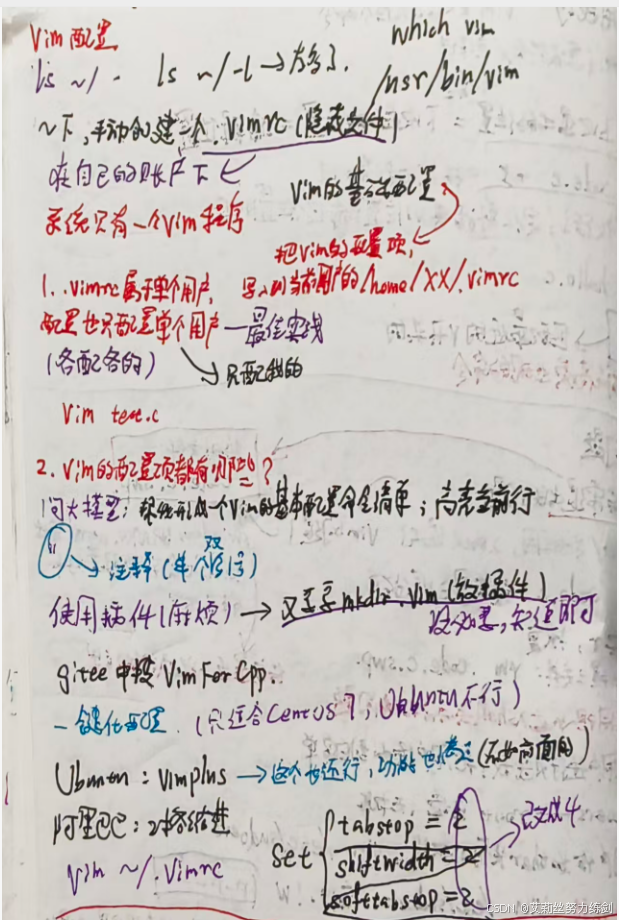 Vim 配置
which vim
ls ~/ - ls ~/ -l → 方多了.
/usr/bin/vim
~下,手动创建一个 .vimrc (隐藏文件)
在自己的账户下
Vim的基础配置
系统只有一个Vim程序
把Vim的配置项,
1. .vimrc属于单个用户, 写入到当前用户的/home/XX/.vimrc
配置也只配置单个用户 — 最佳实践
(各配各的) → 只配我的
Vim test.c
2. Vim的配置项都有哪些?
问大模型: 帮我形成一个Vim的基本配置命令清单; 高亮当前行
" → 注释 (单个双引号)
使用插件(麻烦) → 又要mkdir .vim (放插件)
没必要, 知道即可
gitee中搜 VimForCpp.
一键化配置. (只适合Centos 7, Ubuntu不行)
Ubuntu : vimplus → 这个也还行, 功能也满足 (不如前面的)
阿里巴巴: 2格缩进
Vim ~/.vimrc
set { tabstop = 2
shiftwidth = 2
softtabstop = 2
→ 改成4
CSDN @艾莉丝努力练剑